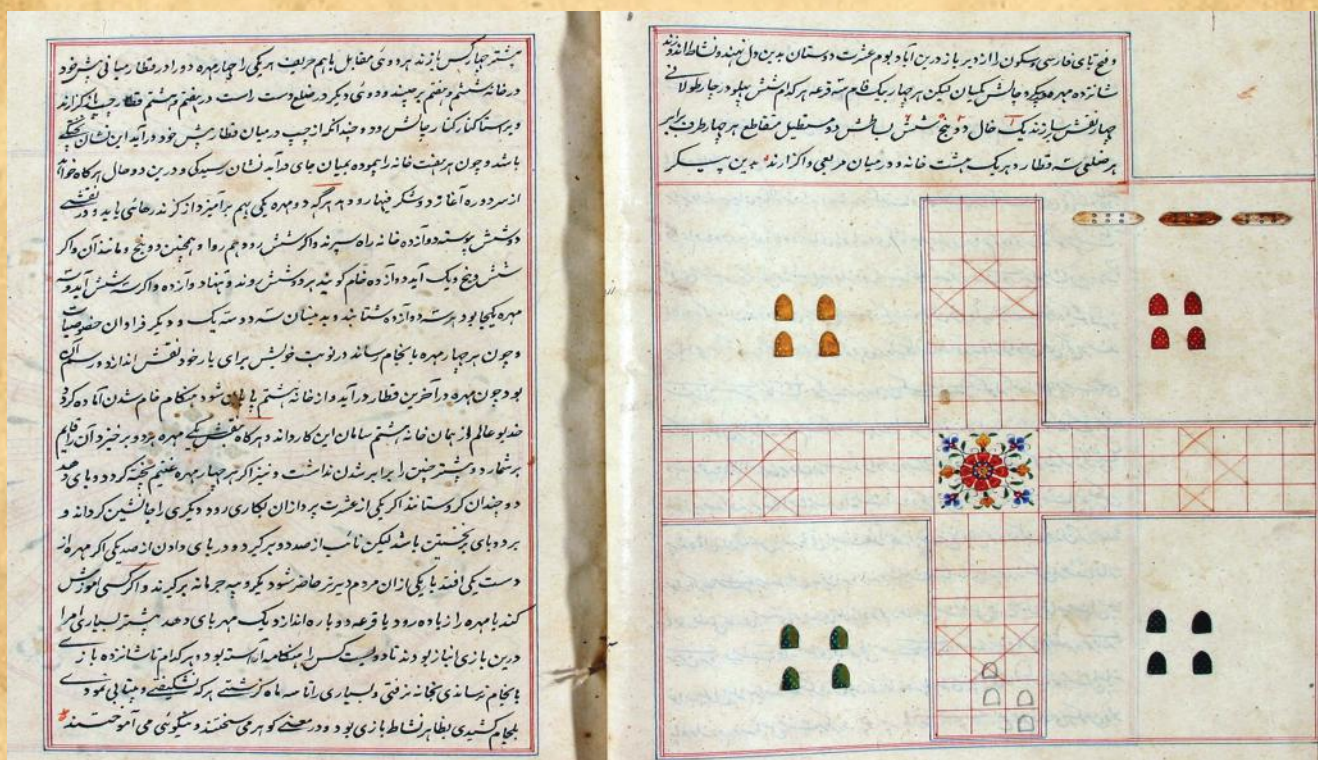 و فتح تای فارسی و سکون را از دیر باز درین آباد بوم عشرت دوستان بدین دل نهند و نشاط اندوزند
شانزده مهره همپیکر و چالش یکسان لیکن هر چهار یک فام سه قرعه هر کدام شش پهلو در چار طولانی
چهار نقش بپردازند یک خال دو پنج شش بساطش دو مستطیل متقاطع هر چار طرف برابر
هر ضلعی سه قطار و هر یک هشت خانه و در میان مربعی واگذارند بدین پیکر
بیشتر چهار کس بازند هر دوی مقابل باهم حریف هر یکی را چهار مهره دو را در قطار میانی پیش خود
در خانه ششم و هفتم برچینند و دوی دیگر در ضلع دست راست در هفتم و هشتم قطار چپ واگذارند
و بر راستا کنار کنار چالش رود و چندانکه از چپ درمیان قطار پیش خود درآید این نشان پختگی
باشد و چون هر هفت خانه را پیموده بمیان جای درآید نشان رسیدگی و درین دو حال هرگاه خواهد
از سر دوره آغازد و شگرفیها رو دهد هرگه دو مهره یکی بهم برآمیزد از گزند رهائی یابد و در نقشی
دو شش پیوسته دوازده خانه راه سپرند و اگر شش رود هم روا و همچنین دو پنج و مانند آن و اگر
شش و پنج و یک آید دوازده خام گویند هر دو شش روند و تنها دوازده و اگر سه شش آید و سه
مهره یکجا بود هر سه دوازده شتابند و بدینسان سه دو سه یک و دیگر فراوان خصوصیات
و چون هر چهار مهره بانجام رساند در نوبت خویش برای یار خود نقش اندازد و رسم آن
بود چون مهره در آخرین قطار درآید و از خانه هشتم پایان شود هنگام خام شدن آماده گردد
خدیو عالم از همان خانه هشتم سامان این کار داند و هرگاه نقش یکی مهره بزد و برخیزد آن را قایم
بر شمارد و پیشتر چنین را برابر شدن نداشت و نیز اگر هر چهار مهره غنیم پخته گردد و بای دهد
دو چندان گرو ستانند اگر یکی از عشرت پردازان بکاری رود دیگری را جانشین گرداند و
برد و بای بر نخستین باشد لیکن نائب از صد دو برگیرد و در بای دادن از صد یکی اگر مهره از
دست یکی افتد یا یکی ازان مردم دیر تر حاضر شود یک روپیه جرمانه برگیرند و اگر کسی آموزش
کند یا مهره را زیاده رود یا قرعه دوباره اندازد یک مهر بای دهد پیشتر بسیاری امرا
درین بازی انباز بودند تا دویست کس را هنگامه آراسته بود و هر کدام تا شانزده بازی
بانجام نرساندی بخانه نرفتی و بسیاری را تا سه ماه گذشتی هر که نشکیبیدی و بیتابی نمودی
بجام کشیدی بظاهر نشاط بازی بود و در معنی گوهر می سختند و نیکوئی می آموختند